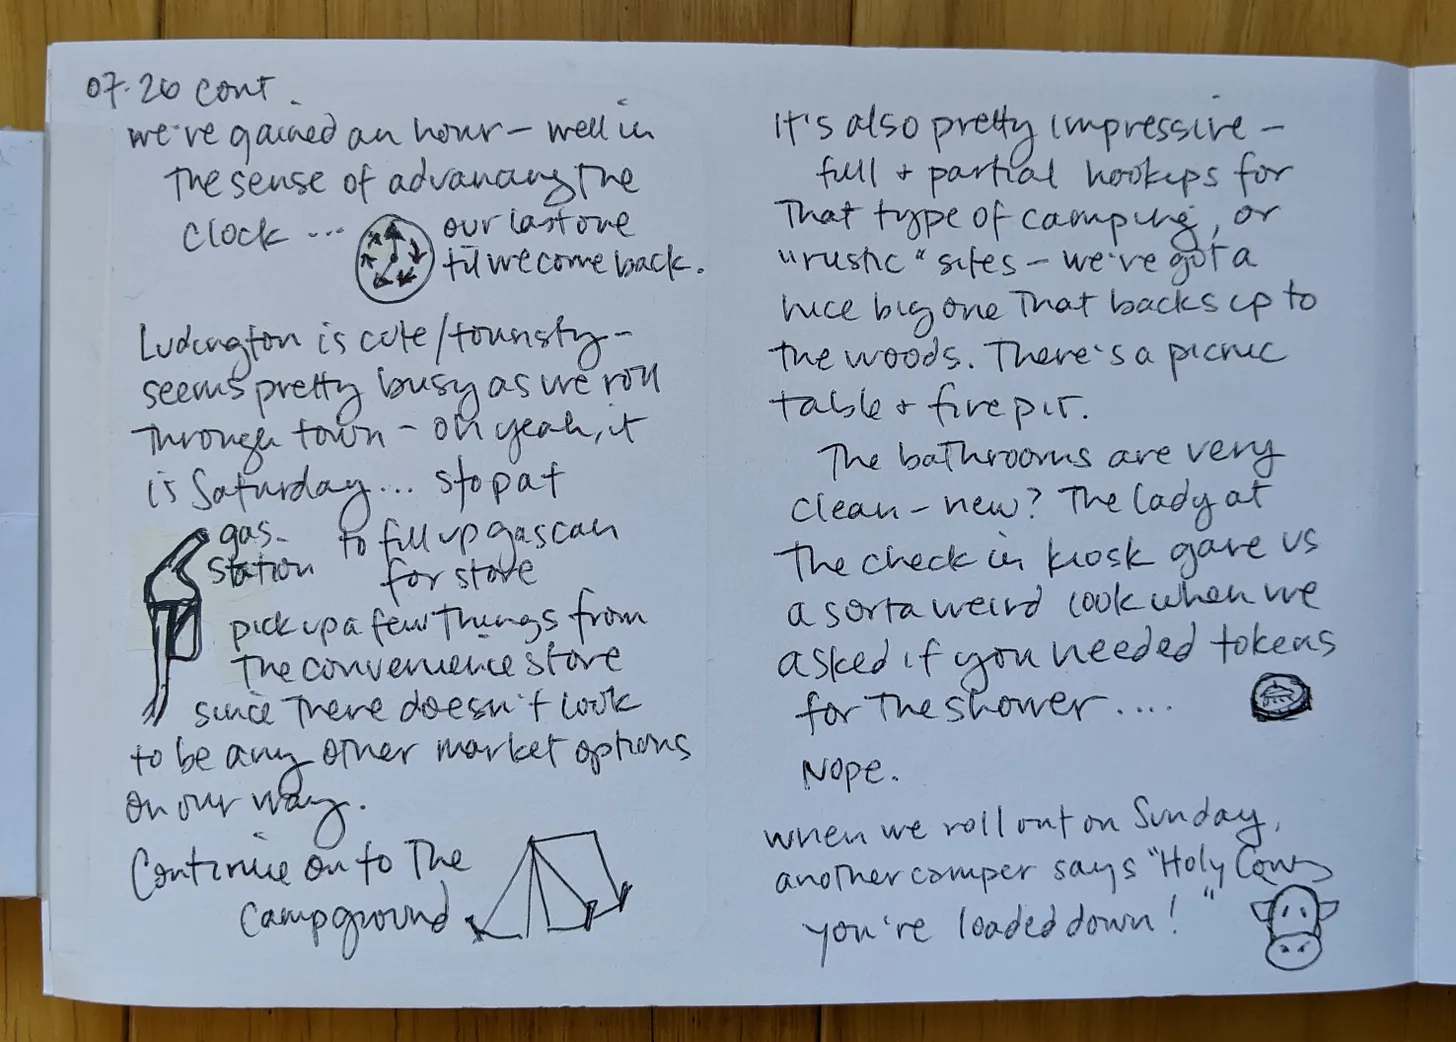 07.26 cont.
we've gained an hour – well in
the sense of advancing the
clock ... our last one
til we come back.
Ludington is cute/touristy –
seems pretty busy as we roll
through town – oh yeah, it
is Saturday... stop at
gas- to fill up gas can
station for stove
pick up a few things from
the convenience store
since there doesn't look
to be any other market options
on our way.
Continue on to the
campground
it's also pretty impressive –
full + partial hookups for
that type of camping, or
"rustic" sites – we've got a
nice big one that backs up to
the woods. There's a picnic
table + firepit.
The bathrooms are very
clean – new? The lady at
the check in kiosk gave us
a sorta weird look when we
asked if you needed tokens
for the shower....
Nope.
when we roll out on Sunday,
another camper says "Holy Cow,
you're loaded down!"